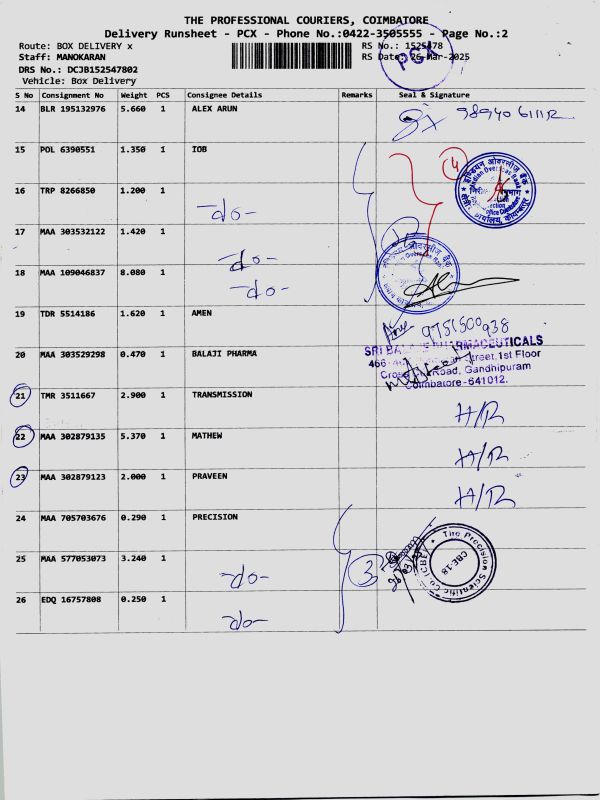 THE PROFESSIONAL COURIERS, COIMBATORE
Delivery Runsheet - PCX - Phone No.:0422-3505555 - Page No.:2
Route: BOX DELIVERY x
RS No.: 1525478
Staff: MANOKARAN
RS Date: 26-Mar-2025
PCX
DRS No.: DCJB152547802
Vehicle: Box Delivery
S No Consignment No Weight PCS Consignee Details Remarks Seal & Signature
14 BLR 195132976 5.660 1 ALEX ARUN
15 POL 6390551 1.350 1 IOB
(4)
16 TRP 8266850 1.200 1 -do-
17 MAA 303532122 1.420 1 -do-
18 MAA 109046837 8.080 1 -do-
19 TDR 5514186 1.620 1 AMEN
9751500938
20 MAA 303529298 0.470 1 BALAJI PHARMA
SRI BALAJI PHARMACEUTICALS
Street, 1st Floor
Cross Road, Gandhipuram
Coimbatore-641012.
21 TMR 3511667 2.900 1 TRANSMISSION H/R
22 MAA 302879135 5.370 1 MATHEW H/R
23 MAA 302879123 2.000 1 PRAVEEN H/R
24 MAA 705703676 0.290 1 PRECISION
25 MAA 577053073 3.240 1 -do- 3
The Precision Scientific Co. (CBE)
CBE-18
26 EDQ 16757808 0.250 1 -do-